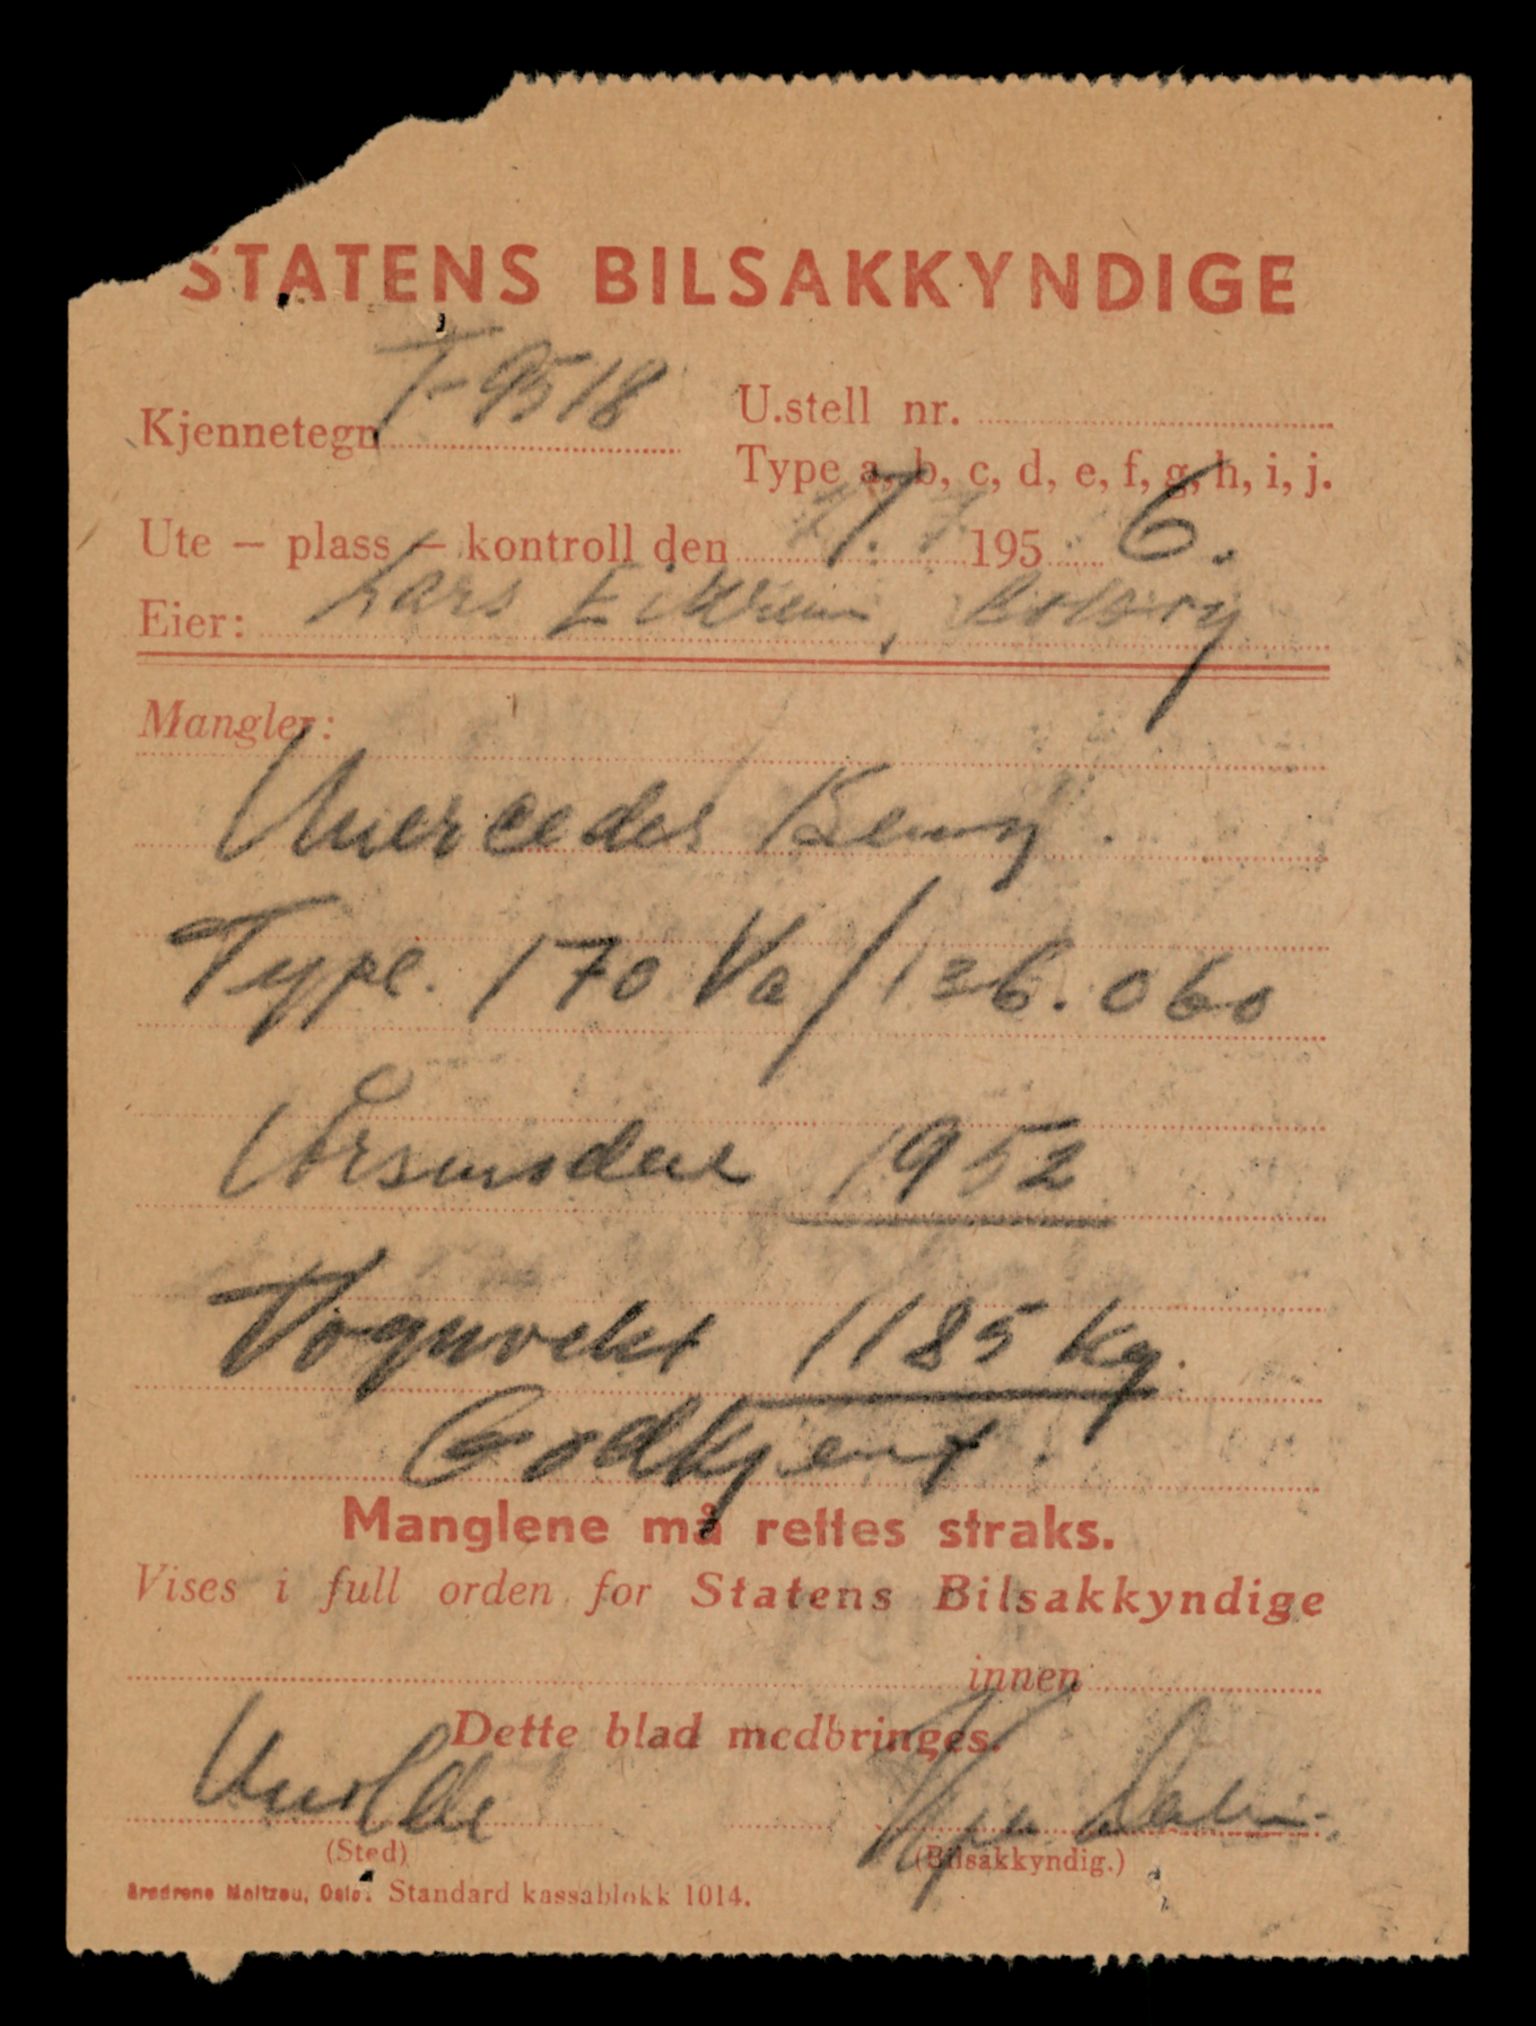 STATENS BILSAKKYNDIGE
Kjennetegn T-9518
U.stell nr.
Type a, b, c, d, e, f, g, h, i, j.
Ute – plass – kontroll den 7. 195 6.
Eier: Lars Eikrem,
Mangler:
Mercedes Benz.
Type. 170 Va/136.060
Årsmodell 1952
Vognvekt 1185 kg.
Godkjent.
Manglene må rettes straks.
Vises i full orden for Statens Bilsakkyndige
innen
Dette blad medbringes.
Molde
(Sted)
(Bilsakkyndig.)
Brødrene Maltzau, Oslo. Standard kassablokk 1014.